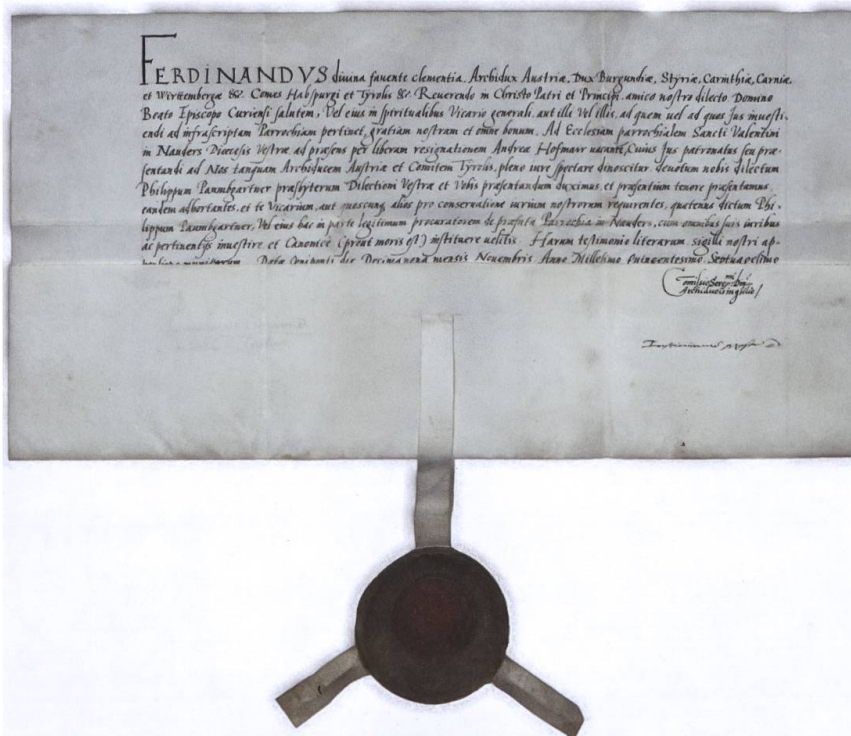 FERDINANDVS divina favente clementia Archidux Austriæ, Dux Burgundiæ, Styriæ, Carinthiæ, Carniæ,
et Wirtembergæ &c. Comes Habspurgi et Tyrolis &c. Reverendo in Christo Patri et Principi, amico nostro dilecto Domino
Beato Episcopo Curiensi salutem, Vel eius in spiritualibus Vicario generali, aut illi Vel illis, ad quem uel ad quos Jus inuesti-
endi ad infrascriptam Parrochiam pertinet, gratiam nostram et omne bonum. Ad Ecclesiam parrochialem Sancti Valentini
in Nauders Diœcesis Vestræ ad præsens per liberam resignationem Andreæ Hofmair uacantē, Cuius Jus patronatus seu præ-
sentandi ad Nos tanquam Archiducem Austriæ et Comitem Tyrolis, pleno iure spectare dinoscitur, deuotum nobis dilectum
Philippum Paumbgartner præsbyterum Dilectioni Vestræ et Vobis præsentandum duximus, et præsentium tenore præsentamus,
eandem adhortantes, et te Vicarium, aut quoscunq. alios pro conseruatione iurium nostrorum requirentes, quatenus dictum Phi-
lippum Paumbgartner, Vel eius hac in parte legitimum procuratorem de præfata Parrochia in Nauders, cum omnibus suis iuribus
ac pertinentijs inuestire et Canonicè (prout moris est) instituere uelitis. Harum testimonio literarum sigilli nostri ap-
Datæ Oeniponti die Decimanona mensis Nouembris Anno Millesimo Quingentesimo Septuagesimo